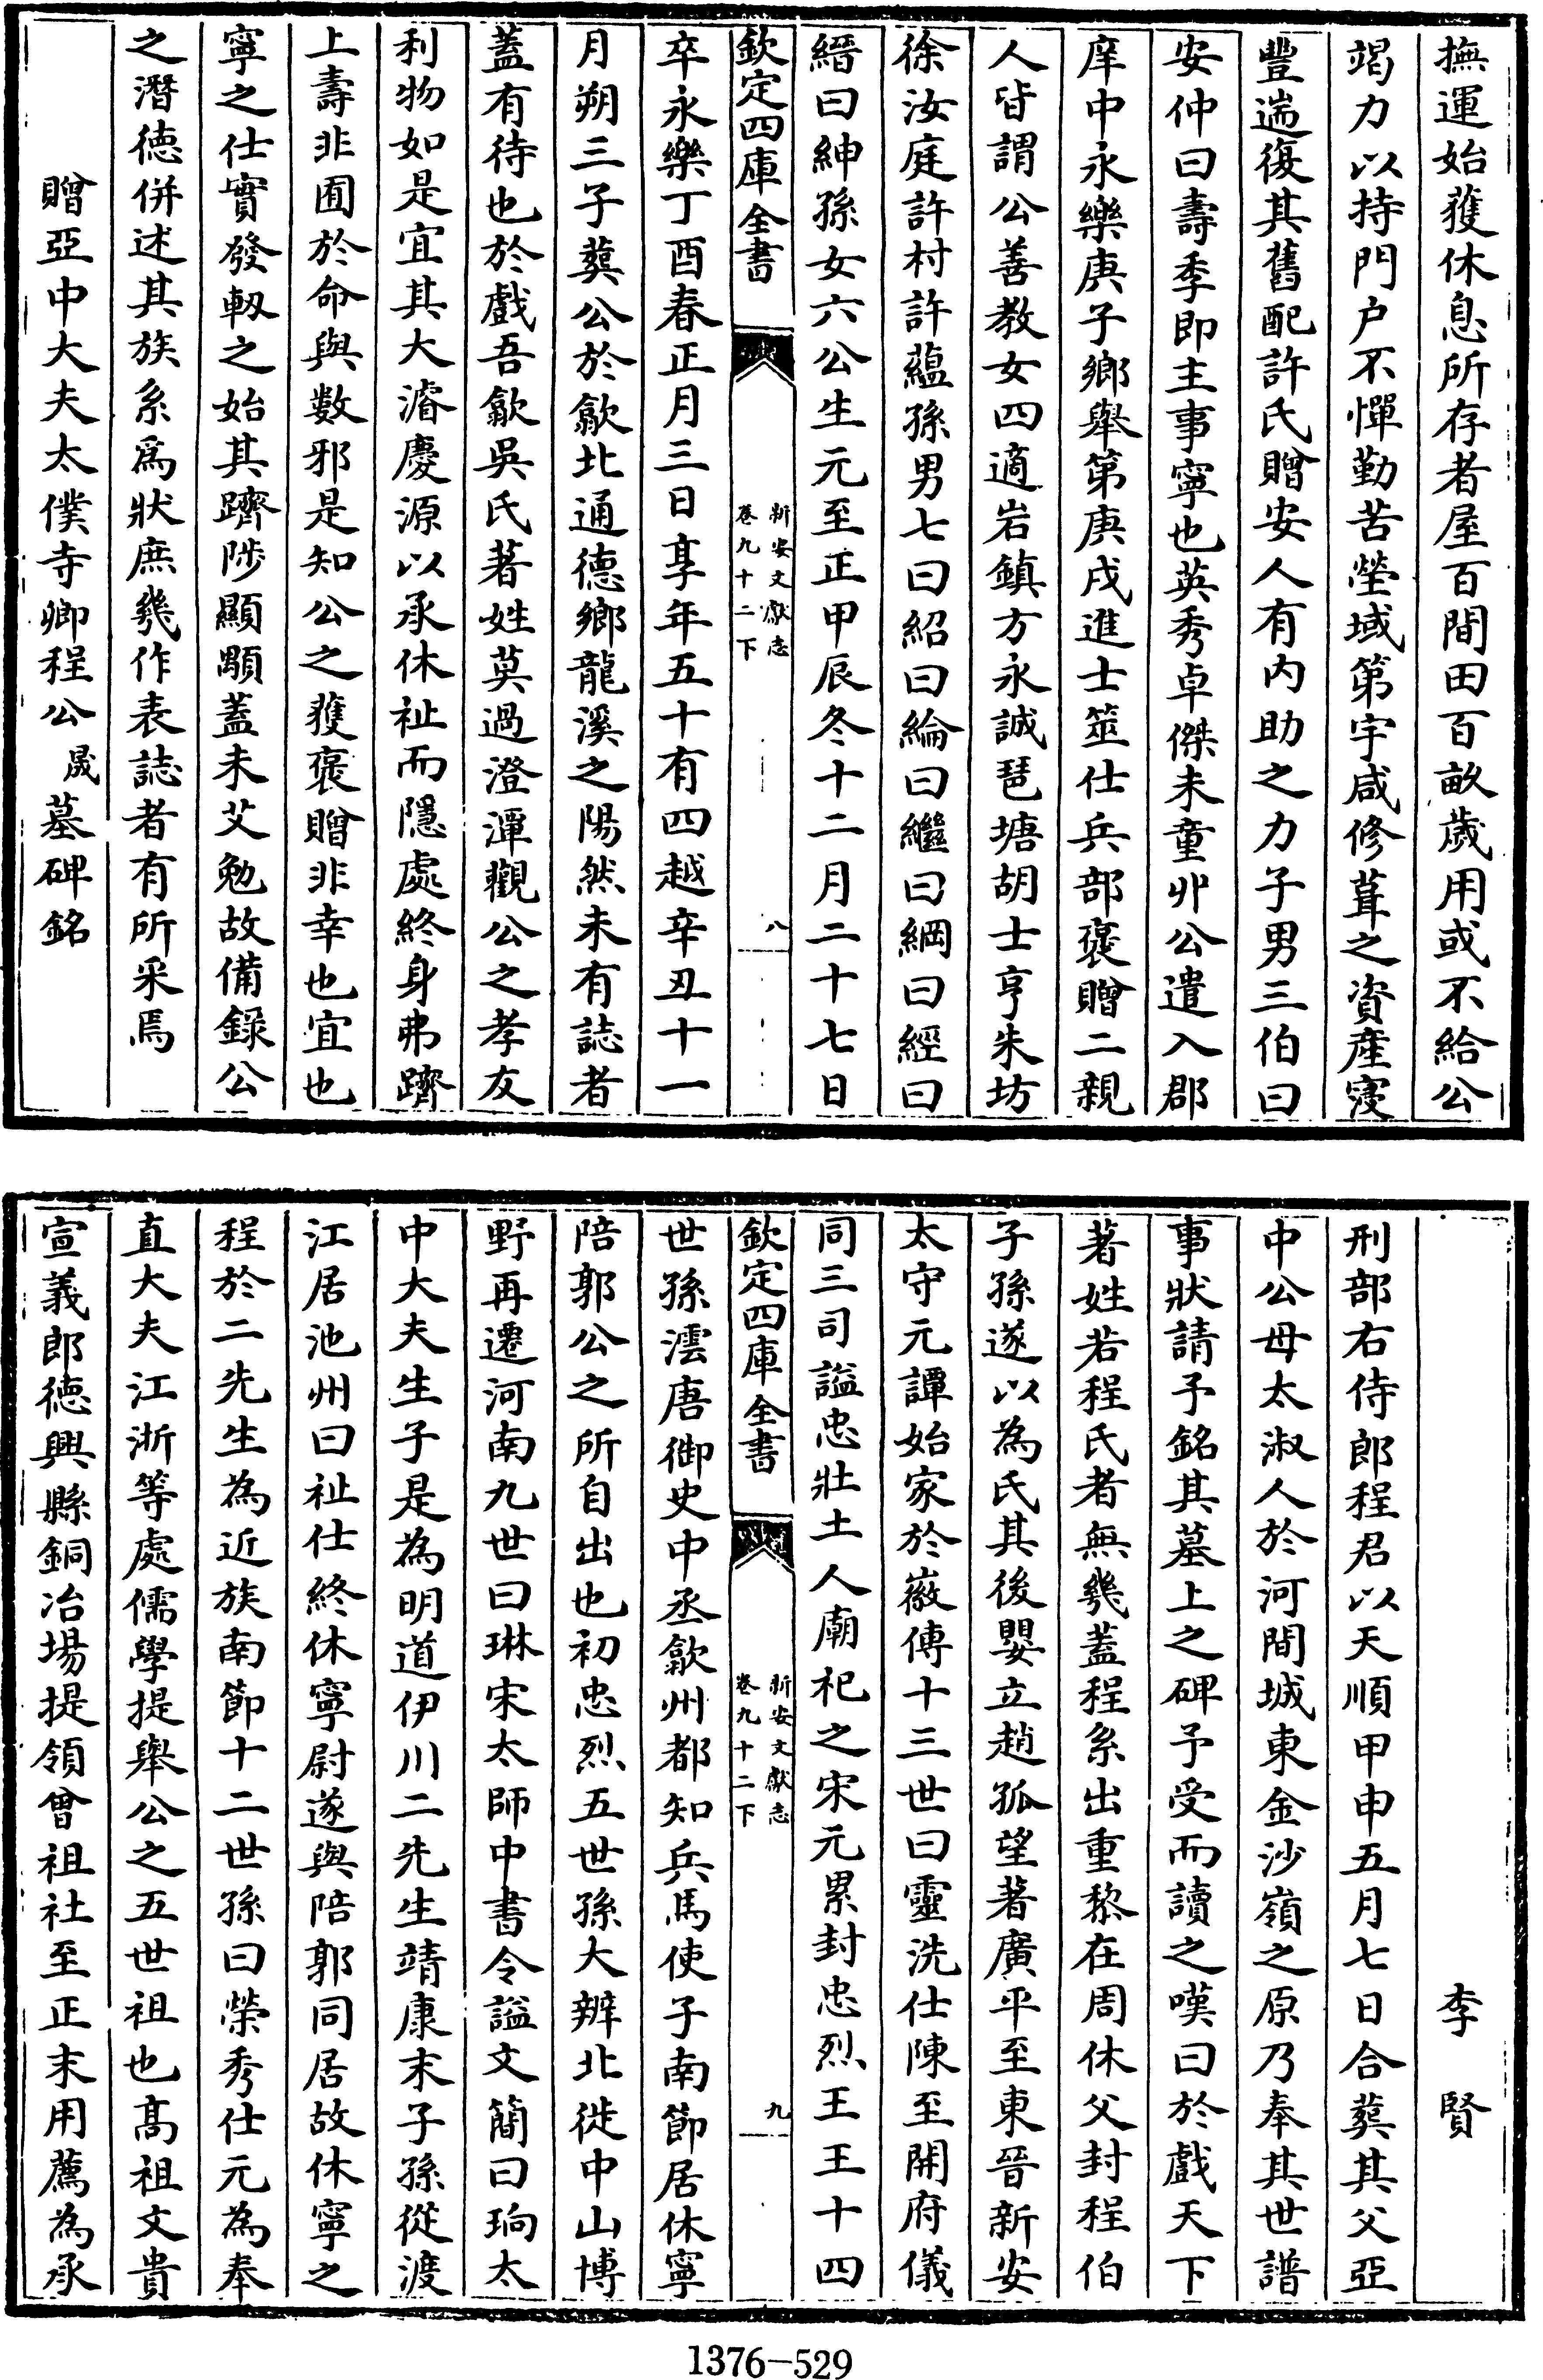 撫運始獲休息所存者屋百間田百畝歲用或不給公
竭力以持門户不憚勤苦塋域第宇咸修葺之資產寖
豐遄復其舊配許氏贈安人有内助之力子男三伯曰
安仲曰壽季即主事寧也英秀卓傑未童丱公遣入郡
庠中永樂庚子鄉舉第庚戌進士筮仕兵部褒贈二親
人皆謂公善教女四適岩鎮方永誠琶塘胡士亨朱坊
徐汝庭許村許蘊孫男七曰紹曰綸曰繼曰綱曰經曰
縉曰紳孫女六公生元至正甲辰冬十二月二十七日
欽定四庫全書
新安文獻志
卷九十二下
八
卒永樂丁酉春正月三日享年五十有四越辛丑十一
月朔三子葬公於歙北通德鄉龍溪之陽然未有誌者
蓋有待也於戲吾歙吳氏著姓莫過澄潭觀公之孝友
利物如是宜其大濬慶源以承休祉而隱處終身弗躋
上壽非囿於命與數邪是知公之獲褒贈非幸也宜也
寧之仕實發軔之始其躋陟顯顒蓋未艾勉故備錄公
之潛德併述其族系爲狀庶幾作表誌者有所采焉
贈亞中大夫太僕寺卿程公晟墓碑銘
李賢
刑部右侍郎程君以天順甲申五月七日合葬其父亞
中公母太淑人於河間城東金沙嶺之原乃奉其世譜
事狀請予銘其墓上之碑予受而讀之嘆曰於戲天下
著姓若程氏者無幾蓋程系出重黎在周休父封程伯
子孫遂以為氏其後嬰立趙孤望著廣平至東晉新安
太守元譚始家於徽傳十三世曰靈洗仕陳至開府儀
同三司謚忠壯土人廟祀之宋元累封忠烈王王十四
欽定四庫全書
新安文獻志
卷九十二下
九
世孫澐唐御史中丞歙州都知兵馬使子南節居休寧
陪郭公之所自出也初忠烈五世孫大辨北徙中山博
野再遷河南九世曰琳宋太師中書令謚文簡曰珦太
中大夫生子是為明道伊川二先生靖康末子孫從渡
江居池州曰祉仕終休寧尉遂與陪郭同居故休寧之
程於二先生為近族南節十二世孫曰榮秀仕元為奉
直大夫江浙等處儒學提舉公之五世祖也高祖文貴
宣義郎德興縣銅冶場提領曾祖社至正末用薦為承
1376-529